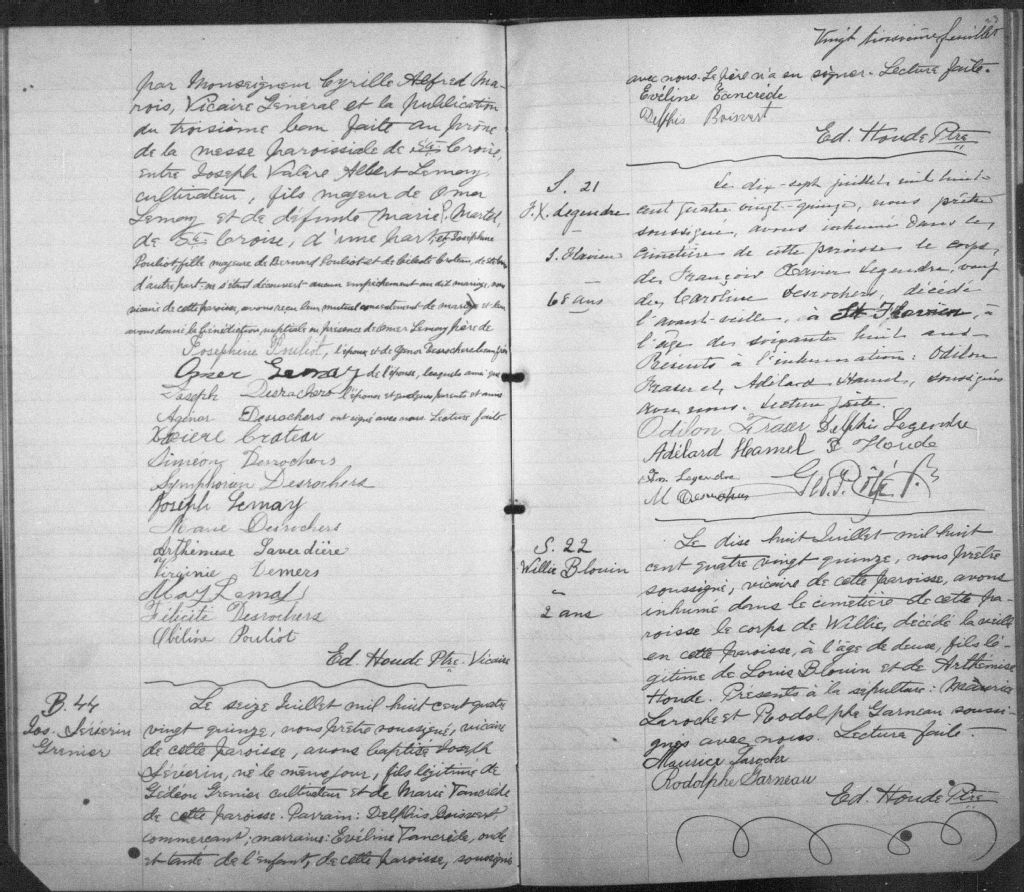 par Monseigneur Cyrille Alfred Ma-
rois, Vicaire General et la publication
du troisième ban faite au prône
de la messe paroissiale de Ste Croix,
entre Joseph Valère Albert Lemay,
cultivateur, fils majeur de Omer
Lemay et de défunte Marie Martel,
de Ste Croix, d'une part, et Joséphine
Pouliot fille majeure de Bernard Pouliot et de Céleste Croteau, de
d'autre part ne s'étant découvert aucun empêchement au dit mariage, nous
vicaire de cette paroisse, avons reçu leur mutuel consentement de mariage et leur
avons donné la bénédiction nuptiale en présence de Omer Lemay père de
Joséphine Pouliot, l'époux et de Agenor Desrochers
Omer Lemay de l'épouse, lesquels ainsi que
Joseph Desrochers l'époux et quelques parents et amis
Agénor Desrochers ont signé avec nous. Lecture faite
Croteau
Siméon Desrochers
Symphorien Desrochers
Joseph Lemay
Marie Desrochers
Arthémese Laverdière
Virginie Demers
May Lemay
Félicité Desrochers
Obéline Pouliot
Ed. Houde Ptre Vicaire
B. 44
Jos. Séverin
Grenier
Le seize Juillet mil huit cent quatre
vingt quinze, nous prêtre soussigné, vicaire
de cette paroisse, avons baptisé Joseph
Séverin, né le même jour, fils légitime de
Gédéon Grenier cultivateur et de Marie Tancrède
de cette paroisse. Parrain: Delphis Boisvert
commerçant; marraine: Eveline Tancrède, oncle
et tante de l'enfant, de cette paroisse, soussignés
23
Vingt troisième feuillet
avec nous. Le père n'a su signer. Lecture faite.
Evéline Tancrède
Delphis Boisvert
Ed. Houde Ptre
S. 21
F. X. Legendre
S. Flavien
68 ans
Le dix-sept juillet mil huit
cent quatre vingt-quinze, nous prêtre
soussigné, avons inhumé dans le
cimetière de cette paroisse le corps
de François Xavier Legendre, veuf
de Caroline Desrochers, décédé
l'avant-veille, à St Flavien, à
l'âge de soixante huit ans
Présents à l'inhumation: Odilon
Fraser et Adélard Hamel, soussignés
avec nous. Lecture faite.
Odilon Fraser Delphis Legendre
Adélard Hamel P Houde
Legendre
M Desrochers
S. 22
Willie Blouin
2 ans
Le dix huit Juillet mil huit
cent quatre vingt quinze, nous prêtre
soussigné, vicaire de cette paroisse, avons
inhumé dans le cimetière de cette pa-
roisse le corps de Willie, décédé la veille
en cette paroisse, à l'âge de deux, fils lé-
gitime de Louis Blouin et de Arthémise
Houde. Présents à la sépulture: Maurice
Laroche et Rodolphe Garneau soussi-
gnés avec nous. Lecture faite.
Maurice Laroche
Rodolphe Garneau
Ed. Houde Ptre